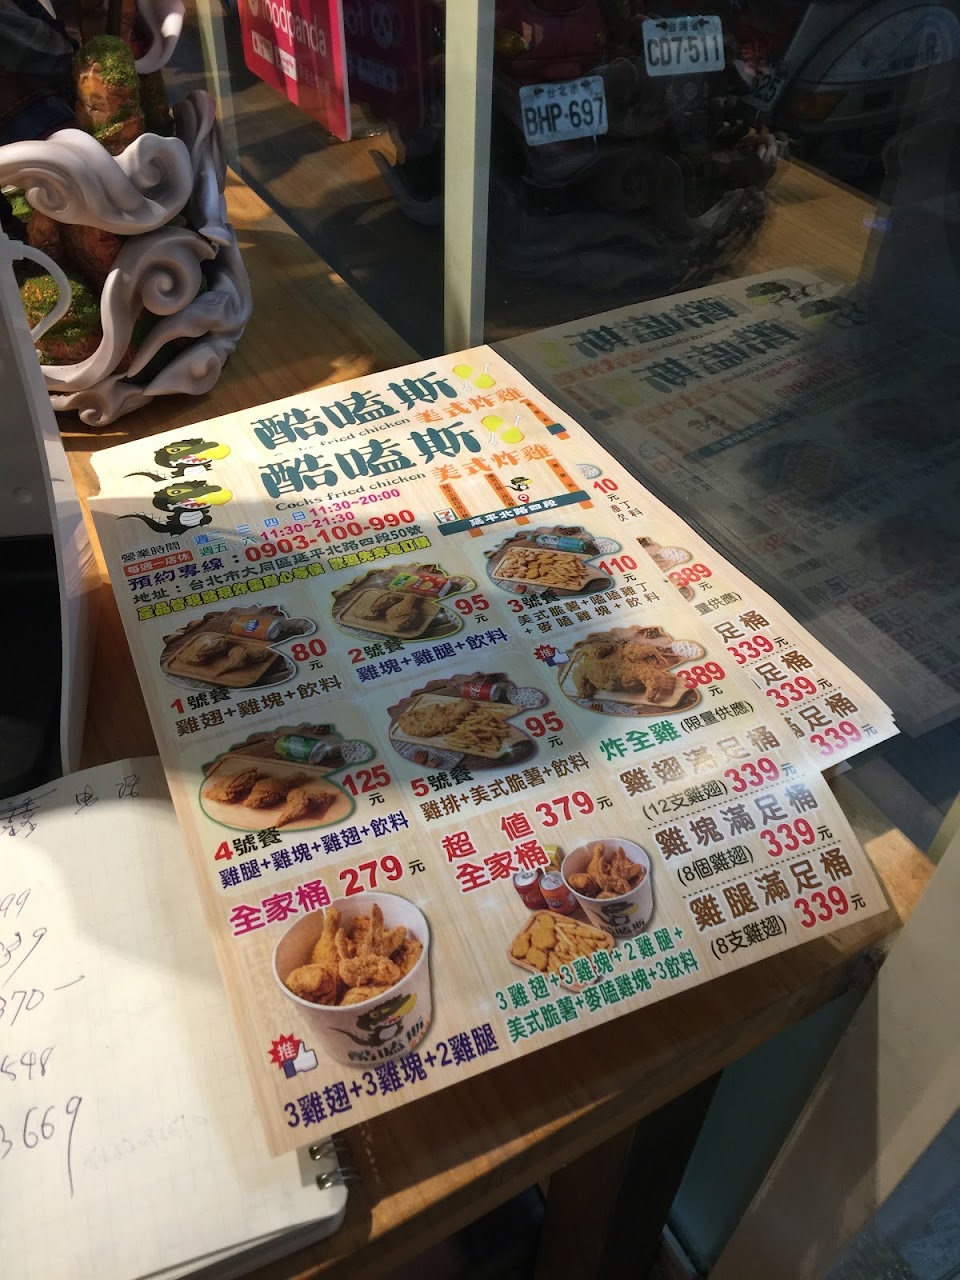 foodpanda
台灣省
CD7·511
台北市
BHP·697
625
酷嗑斯
美式炸雞
fried chicken
酷嗑斯
美式炸雞
Cocks fried chicken
營業時間：週二.三.四.日 11:30~20:00
週五.六 11:30~21:30
每週一店休
預約專線：0903-100-990
地址：台北市大同區延平北路四段50號
產品皆現點現炸需耐心等候 歡迎先來電訂購
延平北路四段
1號餐
80元
雞翅+雞塊+飲料
2號餐
95元
雞塊+雞腿+飲料
3號餐
110元
美式脆薯+嗑嗑雞丁
+麥嗑雞塊+飲料
4號餐
125元
雞腿+雞塊+雞翅+飲料
5號餐
95元
雞排+美式脆薯+飲料
推
389元
炸全雞(限量供應)
雞翅滿足桶
(12支雞翅) 339元
雞塊滿足桶
(8個雞翅) 339元
雞腿滿足桶
(8支雞翅) 339元
全家桶 279元
推
酷嗑斯
3雞翅+3雞塊+2雞腿
超值
全家桶
379元
3雞翅+3雞塊+2雞腿+
美式脆薯+麥嗑雞塊+3飲料
10元
389元
量供應)
足桶
339元
足桶
339元
足桶
339元
99
370-
548
3669